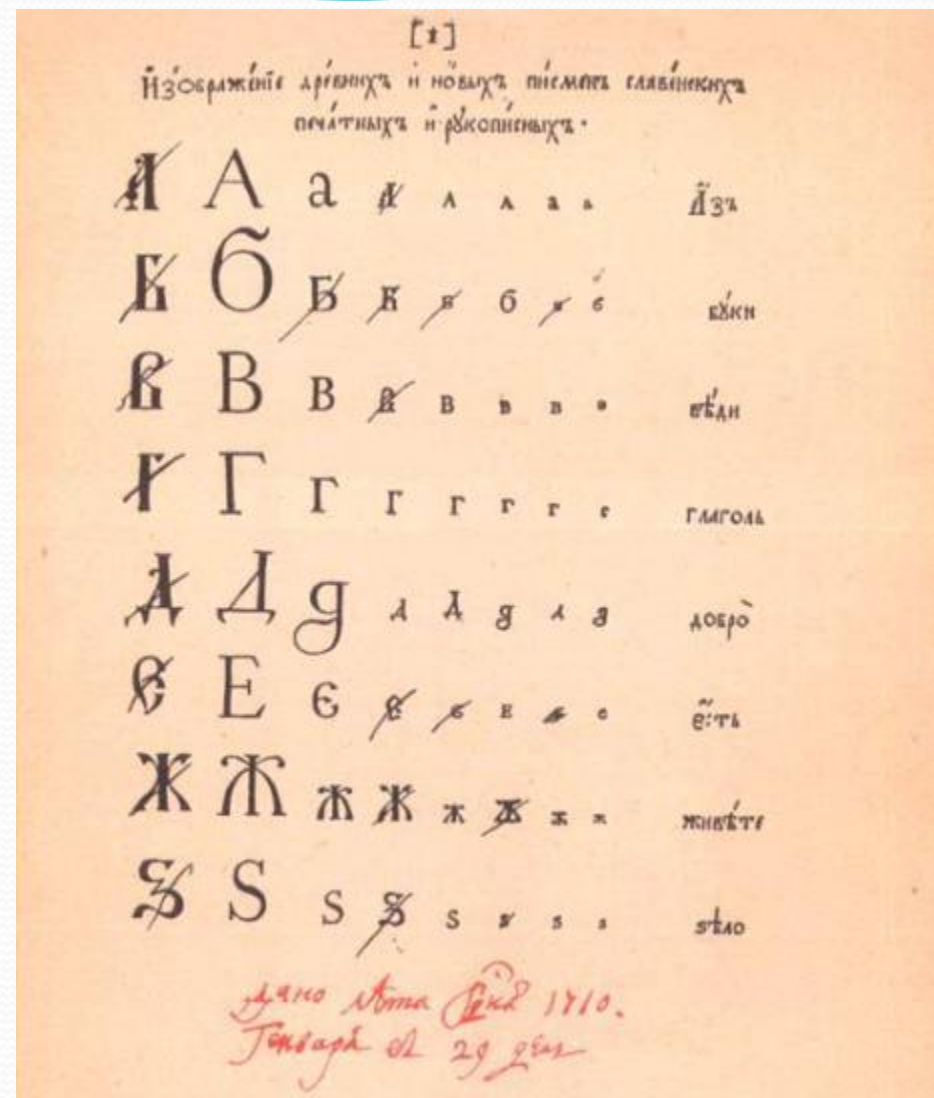 [1]
И҆зѡбраже́нїе дре́внихъ и҆ но́выхъ пи́сменъ славе́нскихъ
печа́тныхъ и҆ рꙋкопи́сныхъ.
А А а А А А а а А҆́зъ
Б б Б Б Б б б б бꙋ́ки
В В В В В В В В вѣ́ди
Г Г Г Г Г Г г г глаго́ль
Д Д д д Д д д д добро̀
Є Е є є є Е є є є҆́сть
Ж Ж Ж Ж Ж Ж Ж Ж живѣ́те
Ѕ Ѕ Ѕ Ѕ Ѕ Ѕ Ѕ Ѕ ѕѣло
дано лѣта 1710.
Генваря въ 29 день